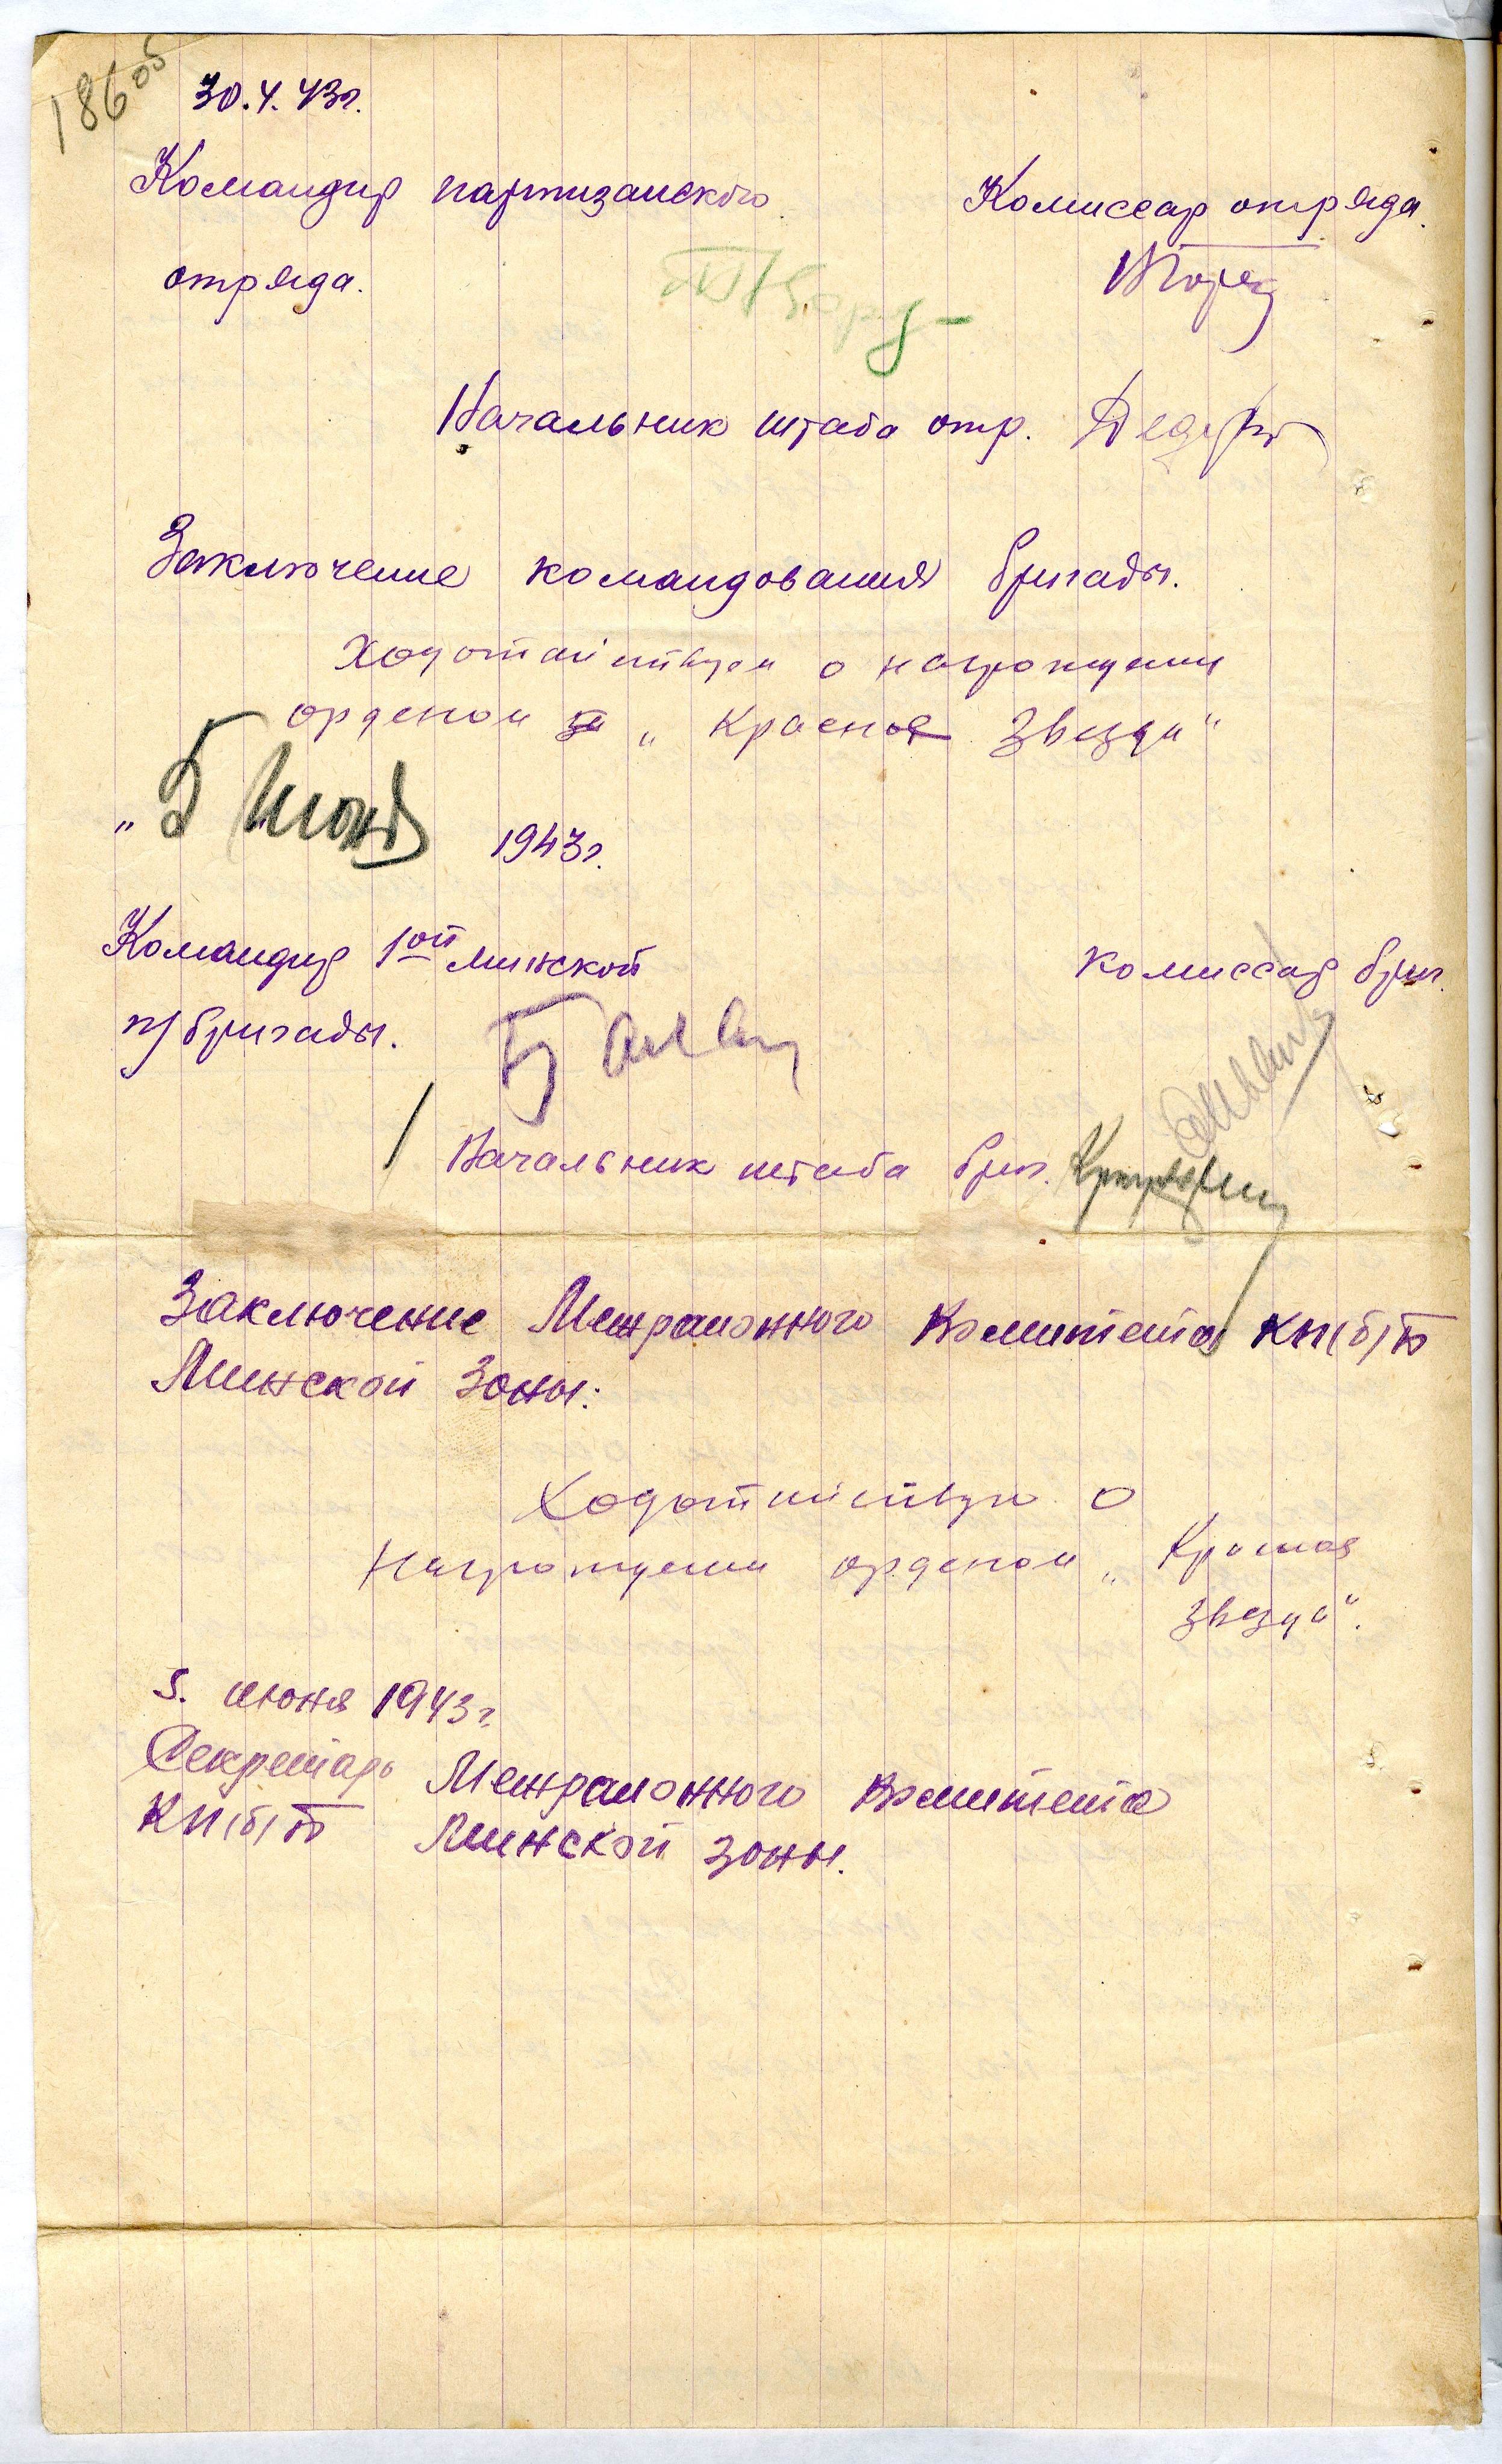 186 об
30.4.43г.
Командир партизанского
отряда.
Комиссар отряда.
Начальник штаба отр.
Заключение командования бригады.
Ходотайствуем о награждении
орденом "Красная Звезда"
" 5 " июня 1943г.
Командир 1ой Минской
п/бригады.
комиссар бриг.
Начальник штаба бриг.
Заключение Межрайонного Комитета КП(б)Б
Минской Зоны:
Ходотайствую о
награждении орденом "Красная
Звезда".
5. июня 1943г.
Секретарь Межрайонного Комитета
КП(б)Б Минской зоны.